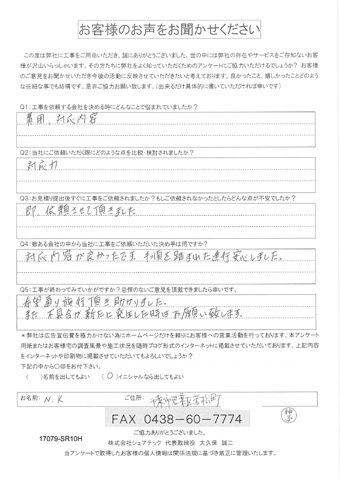 お客様のお声をお聞かせください
この度は弊社に工事をご用命いただき、誠にありがとうございました。世の中には弊社の存在やサービスをご存知ないお客
様が沢山いらっしゃいます。その方たちに弊社をよく知っていただくためのアンケートにご協力いただけるでしょうか?お客様
のご意見をお聞かせいただき今後の活動に反映させていただきたいと考えております。良かったこと、嬉しかったことどのよう
な些細な事でも結構です。是非ご協力お願い致します。(出来るだけ具体的に書いていただければ幸いです)
Q1:工事を依頼する会社を決める時にどんなことで悩まれていましたか?
費用、対応内容
Q2:当社にご依頼いただく際にどのような点を比較・検討されましたか?
対応力
Q3:お見積り提出後すぐに工事をご依頼されましたか?もしご依頼されなかったとしたらどんな点が不安でしたか?
即、依頼させて頂きました
Q4:数ある会社の中から当社に工事を依頼いただいた決め手は何ですか?
対応内容が良かったです。
安心しました。
Q5:工事が終わってみていかがですか?忌憚のないご意見を頂戴できましたら幸いです。
希望通り施行頂き助かりました。
また、不具合が新たに発生した時はお願い致します。
*弊社は広告宣伝費を極力かけない為にホームページだけを頼りにお客様への営業活動を行っております。本アンケート
用紙またはお客様宅の調査風景や施工状況を随時ブログ形式のインターネットに掲載させていただいております。上記内容
をインターネットや印刷物に掲載させていただいてもよろしいでしょうか?
下記の中から〇印をお付け下さい。
( )名前を出してもよい (〇)イニシャルなら出してもよい
お名前: N.K ご住所:
FAX 0438-60-7774
17079-SR10H
ご協力ありがとうございました。
株式会社シェアテック 代表取締役 大久保 誠二
当アンケートで取得したお客様の個人情報は関係法規に基づき厳正に管理いたします。